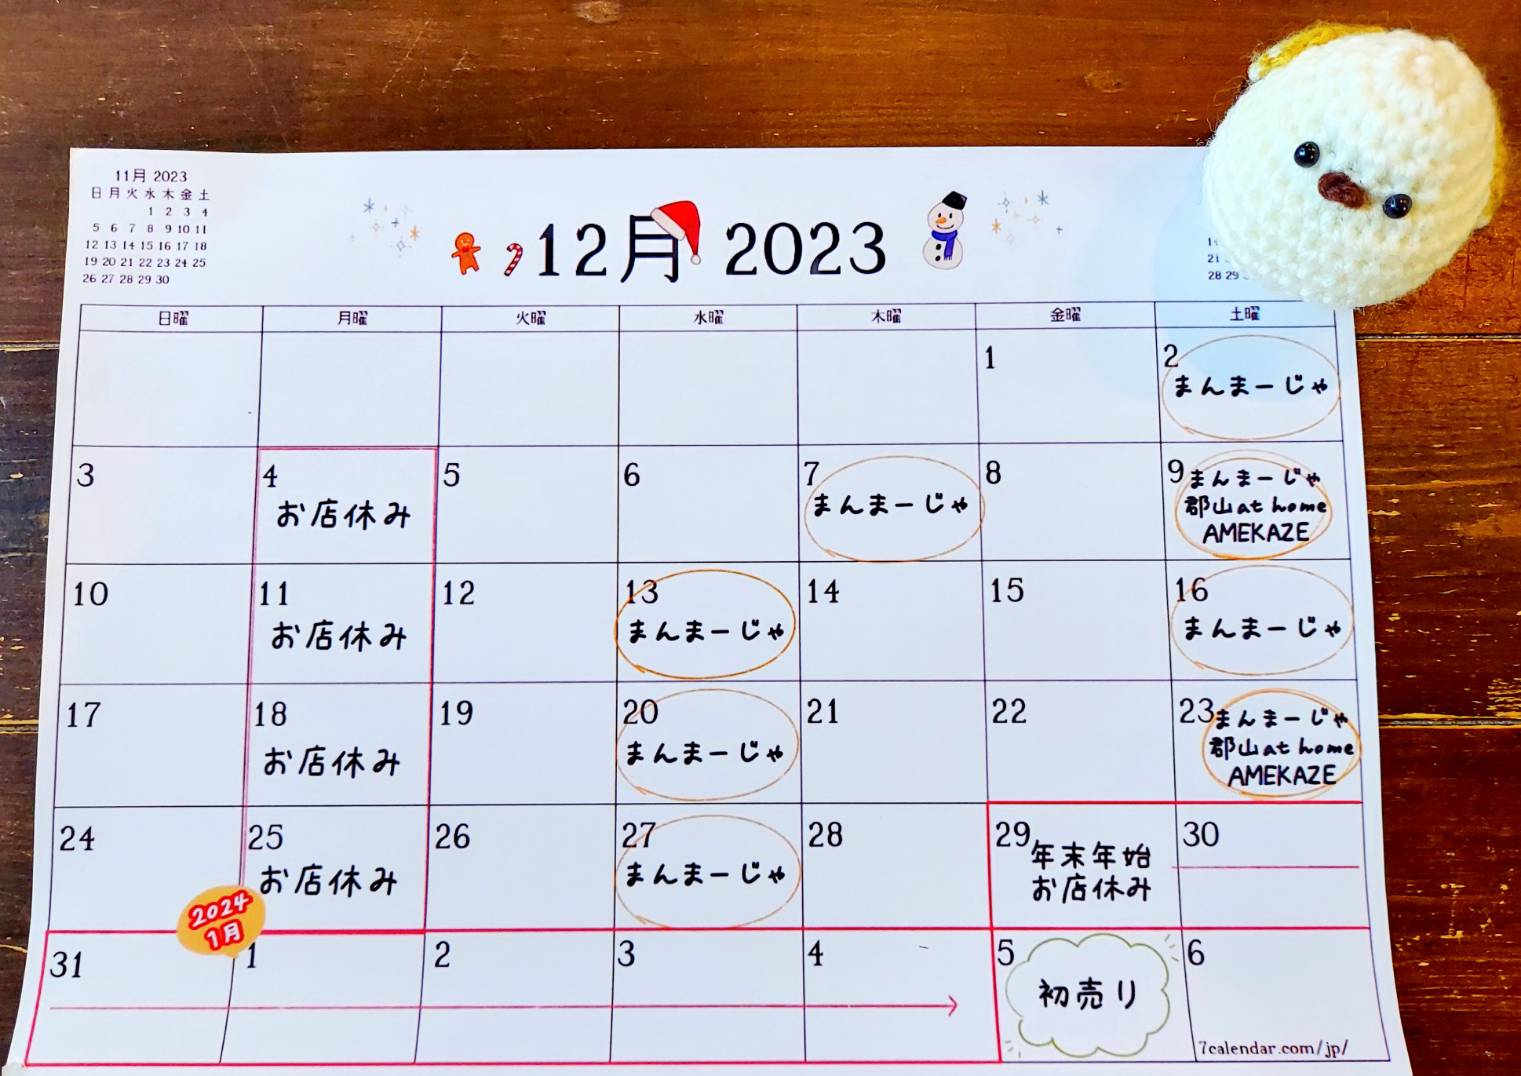 11月 2023
日 月 火 水 木 金 土
1 2 3 4
5 6 7 8 9 10 11
12 13 14 15 16 17 18
19 20 21 22 23 24 25
26 27 28 29 30
12月 2023
21
28 29
日曜 月曜 火曜 水曜 木曜 金曜 土曜
1
2
まんまーじゃ
3
4
お店休み
5
6
7
まんまーじゃ
8
9
まんまーじゃ
郡山at home
AMEKAZE
10
11
お店休み
12
13
まんまーじゃ
14
15
16
まんまーじゃ
17
18
お店休み
19
20
まんまーじゃ
21
22
23
まんまーじゃ
郡山at home
AMEKAZE
24
25
お店休み
26
27
まんまーじゃ
28
29
年末年始
お店休み
30
31
2024
1月
1
2
3
4
5
初売り
6
7calendar.com/jp/